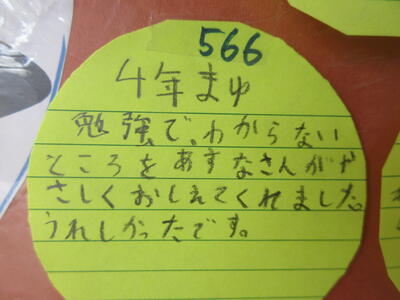 566
4年まゆ
勉強で、わからない
ところをあすなさんがや
さしくおしえてくれました。
うれしかったです。